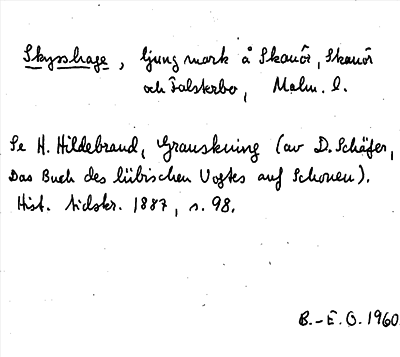 Skysshage, ljungmark å Skanör, Skanör
och Falsterbo, Malm. l.
Se H. Hildebrand, Granskning (av D. Schäfer,
Das Buch des lübischen Vogtes auf Schonen).
Hist. tidskr. 1887, s. 98.
B.-E.O. 1960.